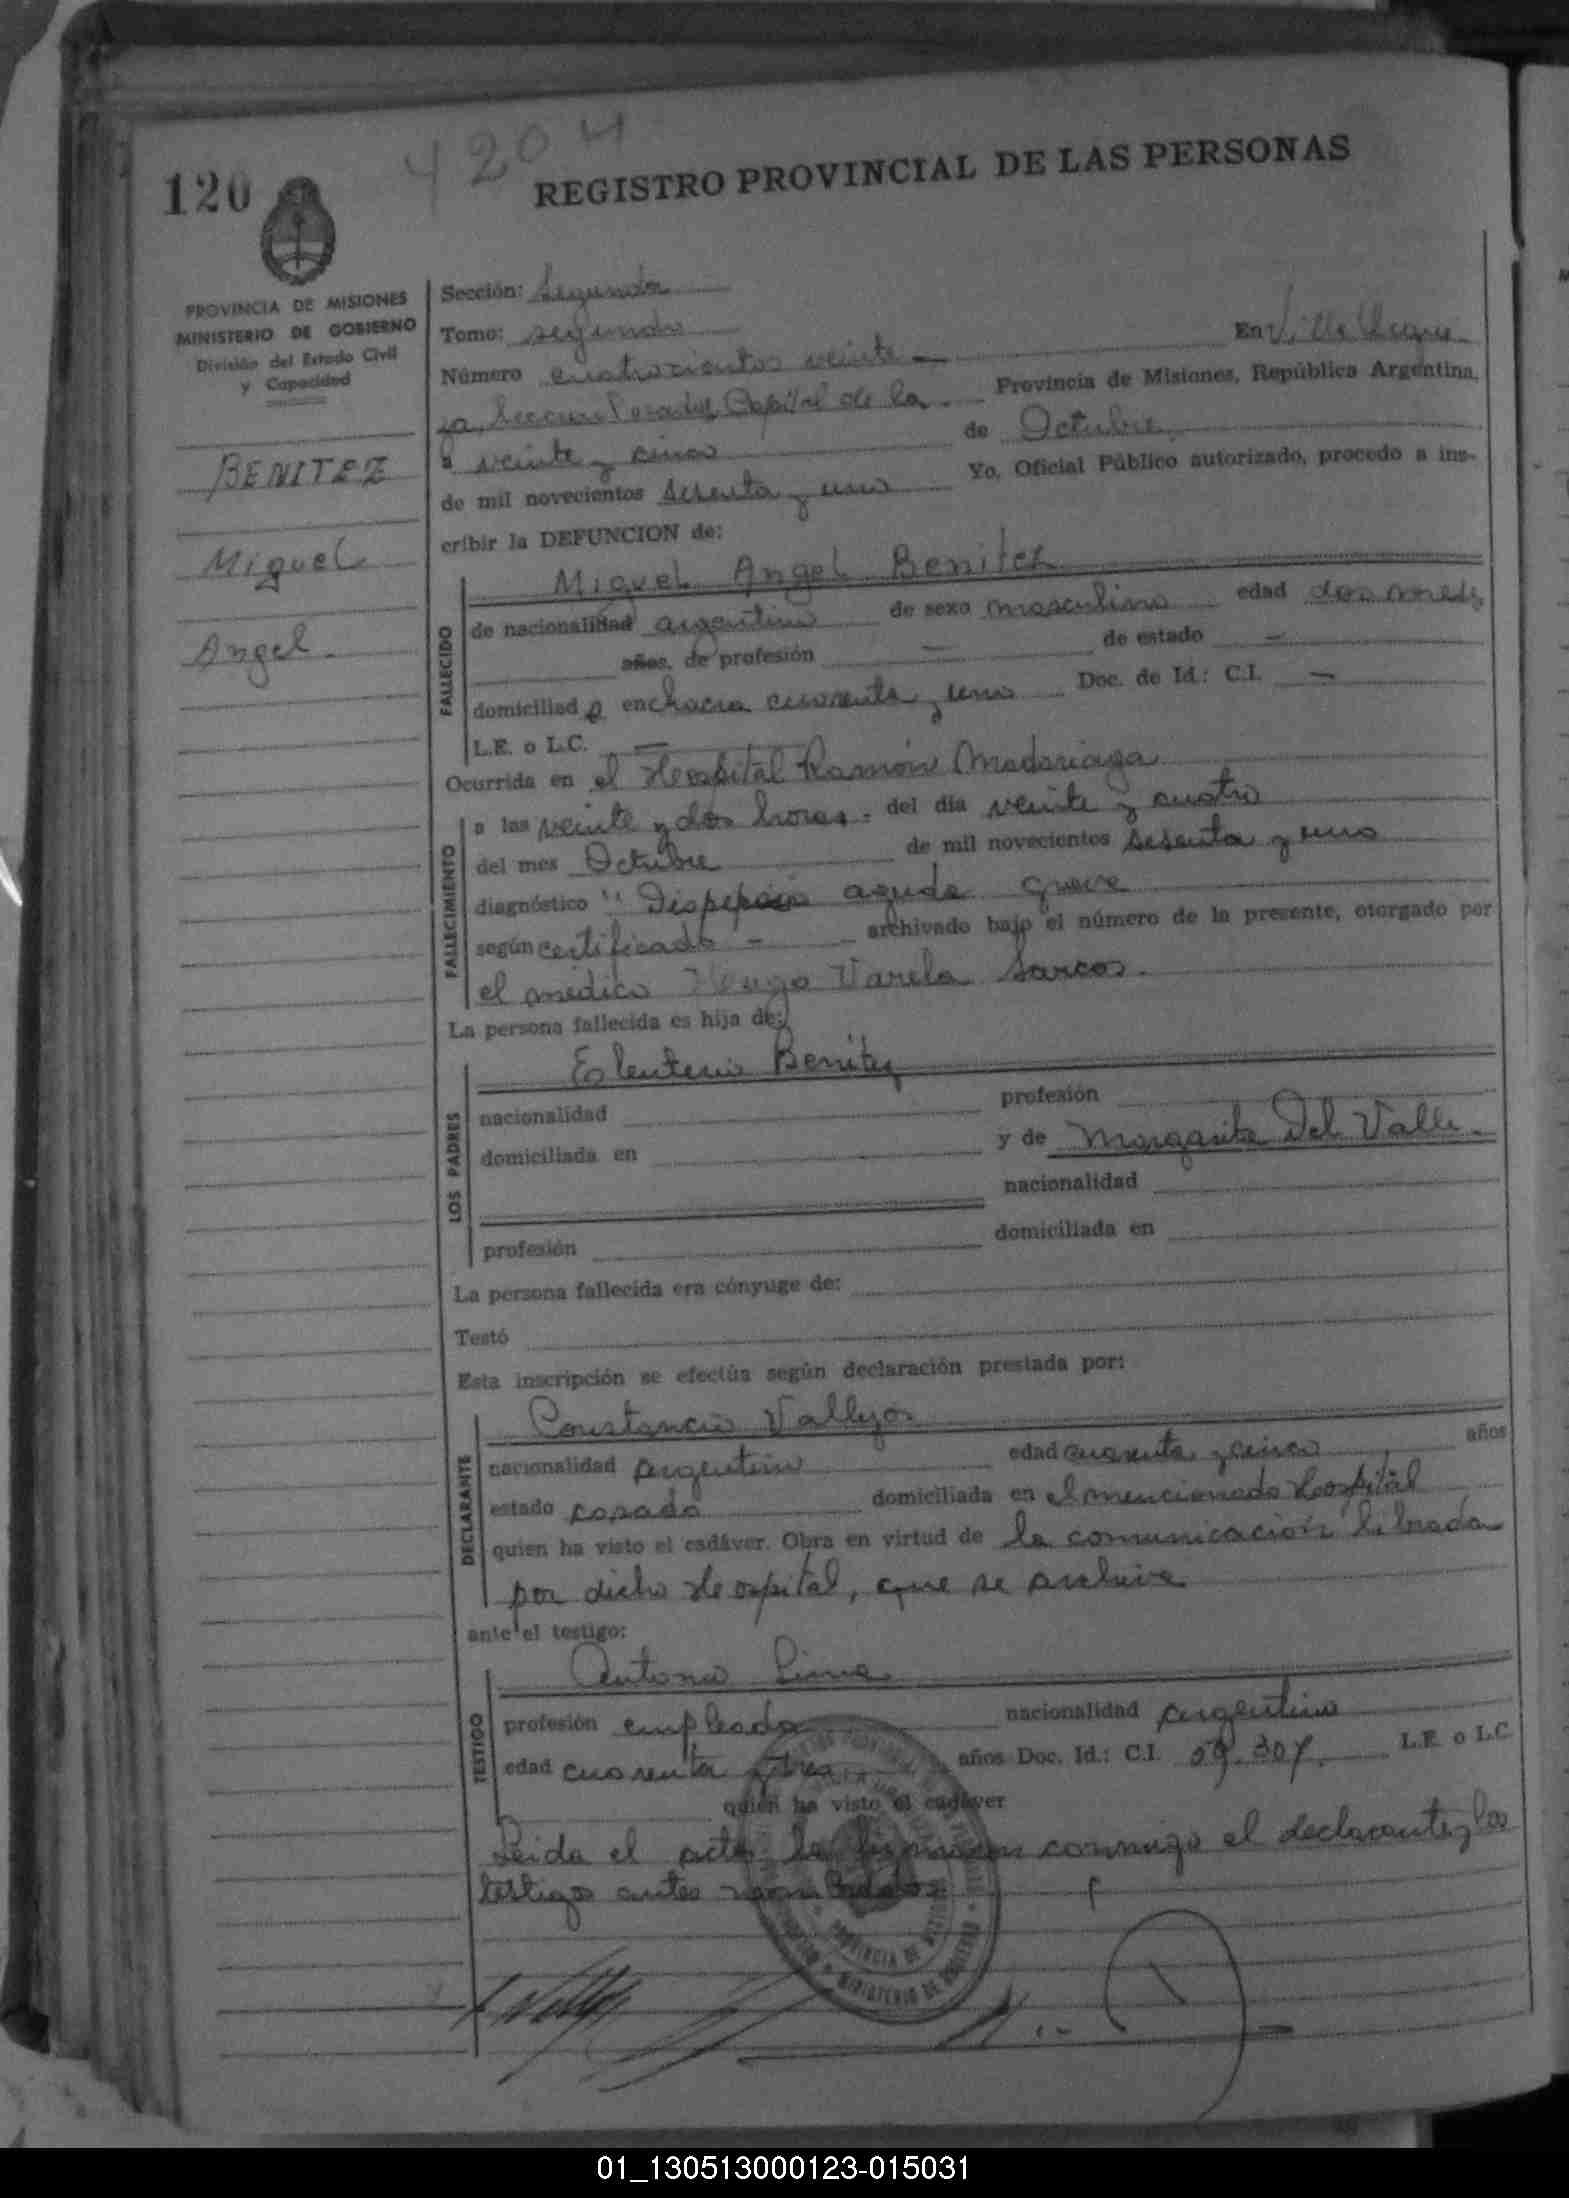 120
4204
REGISTRO PROVINCIAL DE LAS PERSONAS
PROVINCIA DE MISIONES
MINISTERIO DE GOBIERNO
División del Estado Civil
y Capacidad
BENITEZ
Miguel
Angel.
Sección: Segunda
Tomo: segundo
Número cuatrocientos veinte En Villa Urqui-
za, Seccion Posadas Capital de la Provincia de Misiones, República Argentina,
a veinte y cinco de Octubre
de mil novecientos sesenta y uno Yo, Oficial Público autorizado, procedo a ins-
cribir la DEFUNCION de:
FALLECIDO
Miguel Angel Benitez
de nacionalidad argentino de sexo masculino edad dos meses
años, de profesión — de estado —
domiciliado en chacra cuarenta y uno Doc. de Id.: C.I. —
L.E. o L.C. —
Ocurrida en el Hospital Ramón Madariaga
FALLECIMIENTO
a las veinte y dos horas. del día veinte y cuatro
del mes Octubre de mil novecientos sesenta y uno
diagnóstico " Dispepsia aguda grave
según certificado - archivado bajo el número de la presente, otorgado por
el medico Hugo Varela Sarcos.
La persona fallecida es hija de:
LOS PADRES
Eleuterio Benitez
nacionalidad profesión
domiciliada en y de Margarita Del Valle.
nacionalidad
profesión domiciliada en
La persona fallecida era cónyuge de:
Testó
Esta inscripción se efectúa según declaración prestada por:
DECLARANTE
Constancio Vallejos
nacionalidad argentino edad cuarenta y cinco años
estado casado domiciliada en el mencionado Hospital
quien ha visto el cadáver. Obra en virtud de la comunicación librada
por dicho Hospital, que se archiva
ante el testigo:
TESTIGO
Antonio Lima
profesión empleado nacionalidad argentino
edad cuarenta y tres años Doc. Id.: C.I. 09.307. L.E. o L.C.
quien ha visto el cadáver
Leida el acta la firmaron conmigo el declarante y los
testigos antes nombrados
PROVINCIA DE MISIONES
MINISTERIO DE GOBIERNO
01_130513000123-015031